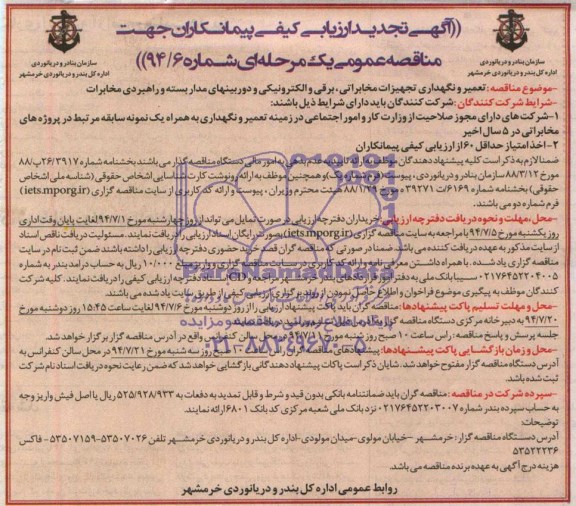 ((آگهی تجدید ارزیابی کیفی پیمانکاران جهت
مناقصه عمومی یک مرحله‌ای شماره ۹۴/۶))
سازمان بنادر و دریانوردی
اداره کل بندر و دریانوردی خرمشهر
سازمان بنادر و دریانوردی
اداره کل بندر و دریانوردی خرمشهر
-موضوع مناقصه: تعمیر و نگهداری تجهیزات مخابراتی، برقی و الکترونیکی و دوربینهای مدار بسته و راهبردی مخابرات
-شرایط شرکت کنندگان: شرکت کنندگان باید دارای شرایط ذیل باشند:
۱-شرکت‌های دارای مجوز صلاحیت از وزارت کار و امور اجتماعی در زمینه تعمیر و نگهداری به همراه یک نمونه سابقه مرتبط در پروژه های
مخابراتی در ۵ سال اخیر
۲-اخذ امتیاز حداقل ۶۰ از ارزیابی کیفی پیمانکاران
ضمنا لازم به ذکر است کلیه پیشنهاد دهندگان دستگاه مناقصه گذار می باشند بخشنامه شماره
مورخ ۸۸/۳/۱۲ و همچنین موظف به ارائه رونوشت کارت شناسایی اشخاص حقوقی (شناسه ملی اشخاص
حقوقی) بخشنامه شماره مورخ ۸۸/۱/۲۹ هیئت محترم وزیران، پیوست و ارائه کد کاربری از سایت مناقصه گزاری (iets.mporg.ir)
فرم شماره دو می باشند.
-محل، مهلت و نحوه دریافت دفترچه ارزیابی: خریداران دفترچه ارزیابی در صورت تمایل می توانند از روز چهارشنبه مورخ ۹۴/۷/۱ لغایت پایان وقت اداری
روز یکشنبه مورخ ۹۴/۷/۵ با مراجعه به سایت مناقصه گزاری (iets.mporg.ir) بصورت رایگان اسناد ارزیابی را دریافت نمایند. مسئولیت دریافت ناقص اسناد
از سایت مذکور به عهده دریافت کننده می باشد. ضمنا در صورتی که مناقصه گران قصد خرید حضوری دفترچه ارزیابی را داشته باشند ضمن ثبت نام در سایت
مناقصه گزاری یاد شده، با همراه داشتن معرفی نامه و ارائه کد کاربری در سایت مناقصه گزاری و واریز مبلغ ۱۰۰/۰۰۰ ریال به حساب درآمد بندر به شماره
۰۲۱۷۶۴۵۲۲۰۴۰۰۵ سیبا بانک ملی دفترچه ارزیابی کیفی را دریافت نمایند. کلیه شرکت
کنندگان موظف به پیگیری موضوع فراخوان و اطلاع حاصل نمودن از روند برگزاری ارزیابی کیفی از طریق سایت یاد شده می باشند.
-محل و مهلت تسلیم پاکت پیشنهادها: مناقصه گران باید پاکت پیشنهاد ارزیابی را از روز دوشنبه مورخ ۹۴/۷/۶ لغایت ساعت ۱۵:۴۵ روز دوشنبه مورخ
۹۴/۷/۲۰ به دبیرخانه مرکزی دستگاه مناقصه گزار
جلسه پرسش و پاسخ مناقصه: راس ساعت ۱۰ صبح روز شنبه مورخ در محل سالن کنفرانس واقع در آدرس دستگاه مناقصه گزار برگزار خواهد شد.
-محل و زمان بازگشایی پاکت پیشنهادها: پیشنهادهای مناقصه گران صبح روز سه شنبه مورخ ۹۴/۷/۲۱ در محل سالن کنفرانس به
آدرس دستگاه مناقصه گزار مفتوح خواهد شد. شایان ذکر است پاکات پیشنهاد دهندگانی بازگشایی خواهد شد که ضمن رعایت نحوه دریافت اسناد نام شرکت
ثبت شده باشد.
-سپرده شرکت در مناقصه: مناقصه گران باید ضمانتنامه بانکی بدون قید و شرط و قابل تمدید به دفعات به ۵۲۵/۹۲۸/۹۳۳ ریال یا اصل فیش واریز وجه
به حساب سپرده بندر شماره ۰۲۱۷۶۴۵۲۲۰۳۰۰۷ نزد بانک ملی شعبه مرکزی کد بانک ۶۸۰۱ ارائه نمایند.
توضیحات:
آدرس دستگاه مناقصه گزار: خرمشهر -خیابان مولوی-میدان مولودی-اداره کل بندر و دریانوردی خرمشهر تلفن ۵۳۵۰۷۰۲۶-۵۳۵۰۷۱۵۹ - فاکس
۵۳۵۲۲۲۳۶
هزینه درج آگهی به عهده برنده مناقصه می باشد.
روابط عمومی اداره کل بندر و دریانوردی خرمشهر
ParsNamadData
۰۲۱-۸۸۳۴۹۶۷۰-۵